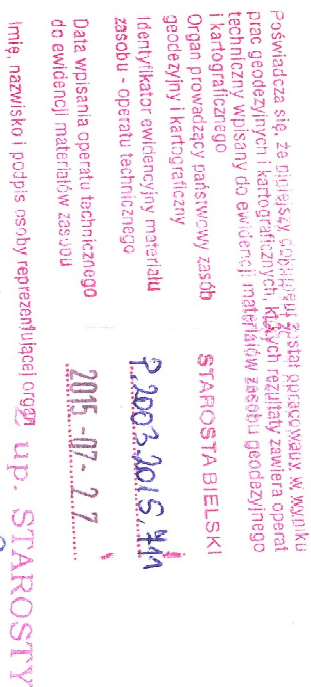 Poświadcza się, że niniejszy dokument został opracowany w wyniku
prac geodezyjnych i kartograficznych, których rezultaty zawiera operat
techniczny wpisany do ewidencji materiałów zasobu geodezyjnego
i kartograficznego
Organ prowadzący państwowy zasób
geodezyjny i kartograficzny
STAROSTA BIELSKI
Identyfikator ewidencyjny materiału
zasobu - operatu technicznego
P.2003.2015.711
Data wpisania operatu technicznego
do ewidencji materiałów zasobu
2015 -07- 2 7
Imię, nazwisko i podpis osoby reprezentującej organ
Z up. STAROSTY